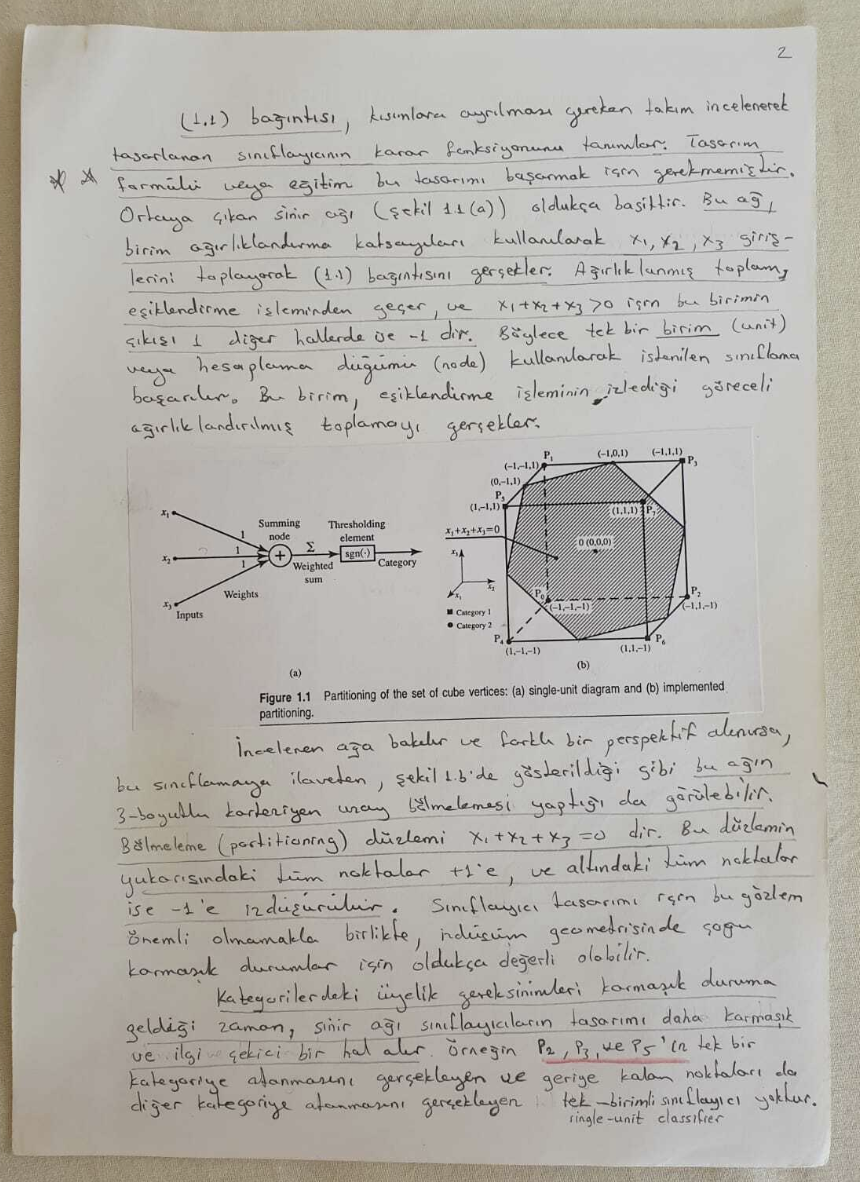 2
(1.1) bağıntısı, kısımlara ayrılması gereken takım incelenerek
tasarlanan sınıflayıcının karar fonksiyonunu tanımlar. Tasarım
formülü veya eğitim bu tasarımı başarmak için gerekmemiştir.
Ortaya çıkan sinir ağı (şekil 1.1(a)) oldukça basittir. Bu ağ,
birim ağırlıklandırma katsayıları kullanılarak x₁, x₂, x₃ giriş-
lerini toplayarak (1.1) bağıntısını gerçekler. Ağırlıklanmış toplam,
eşiklendirme işleminden geçer, ve x₁+x₂+x₃>0 için bu birimin
çıkışı 1 diğer hallerde ise -1 dir. Böylece tek bir birim (unit)
veya hesaplama düğümü (node) kullanılarak istenilen sınıflama
başarılır. Bu birim, eşiklendirme işleminin izlediği göreceli
ağırlıklandırılmış toplamayı gerçekler.
x₁
x₂
x₃
Inputs
1
1
1
Weights
Summing
node
+
Σ
Weighted
sum
Thresholding
element
sgn(·)
Category
(a)
P₁
(-1,-1,1)
(-1,0,1)
(-1,1,1)
P₃
(0,-1,1)
P₅
(1,-1,1)
(1,1,1)
P₇
x₁+x₂+x₃=0
0 (0,0,0)
x₃
x₂
x₁
P₀
(-1,-1,-1)
P₂
(-1,1,-1)
■ Category 1
● Category 2
P₄
(1,-1,-1)
(1,1,-1)
P₆
(b)
Figure 1.1 Partitioning of the set of cube vertices: (a) single-unit diagram and (b) implemented
partitioning.
İncelenen ağa bakılır ve farklı bir perspektif alınırsa,
bu sınıflamaya ilaveten, şekil 1.b'de gösterildiği gibi bu ağın
3-boyutlu karteziyen uzay bölmelemesi yaptığı da görülebilir.
Bölmeleme (partitioning) düzlemi x₁+x₂+x₃=0 dır. Bu düzlemin
yukarısındaki tüm noktalar +1'e, ve altındaki tüm noktalar
ise -1'e izdüşürülür. Sınıflayıcı tasarımı için bu gözlem
önemli olmamakla birlikte, izdüşüm geometrisinde çoğu
karmaşık durumlar için oldukça değerli olabilir.
Kategorilerdeki üyelik gereksinimleri karmaşık duruma
geldiği zaman, sinir ağı sınıflayıcıların tasarımı daha karmaşık
ve ilgi çekici bir hal alır. Örneğin P₂, P₃, ve P₅'in tek bir
kategoriye atanmasını gerçekleyen ve geriye kalan noktaları da
diğer kategoriye atanmasını gerçekleyen tek-birimli sınıflayıcı yoktur.
single-unit classifier